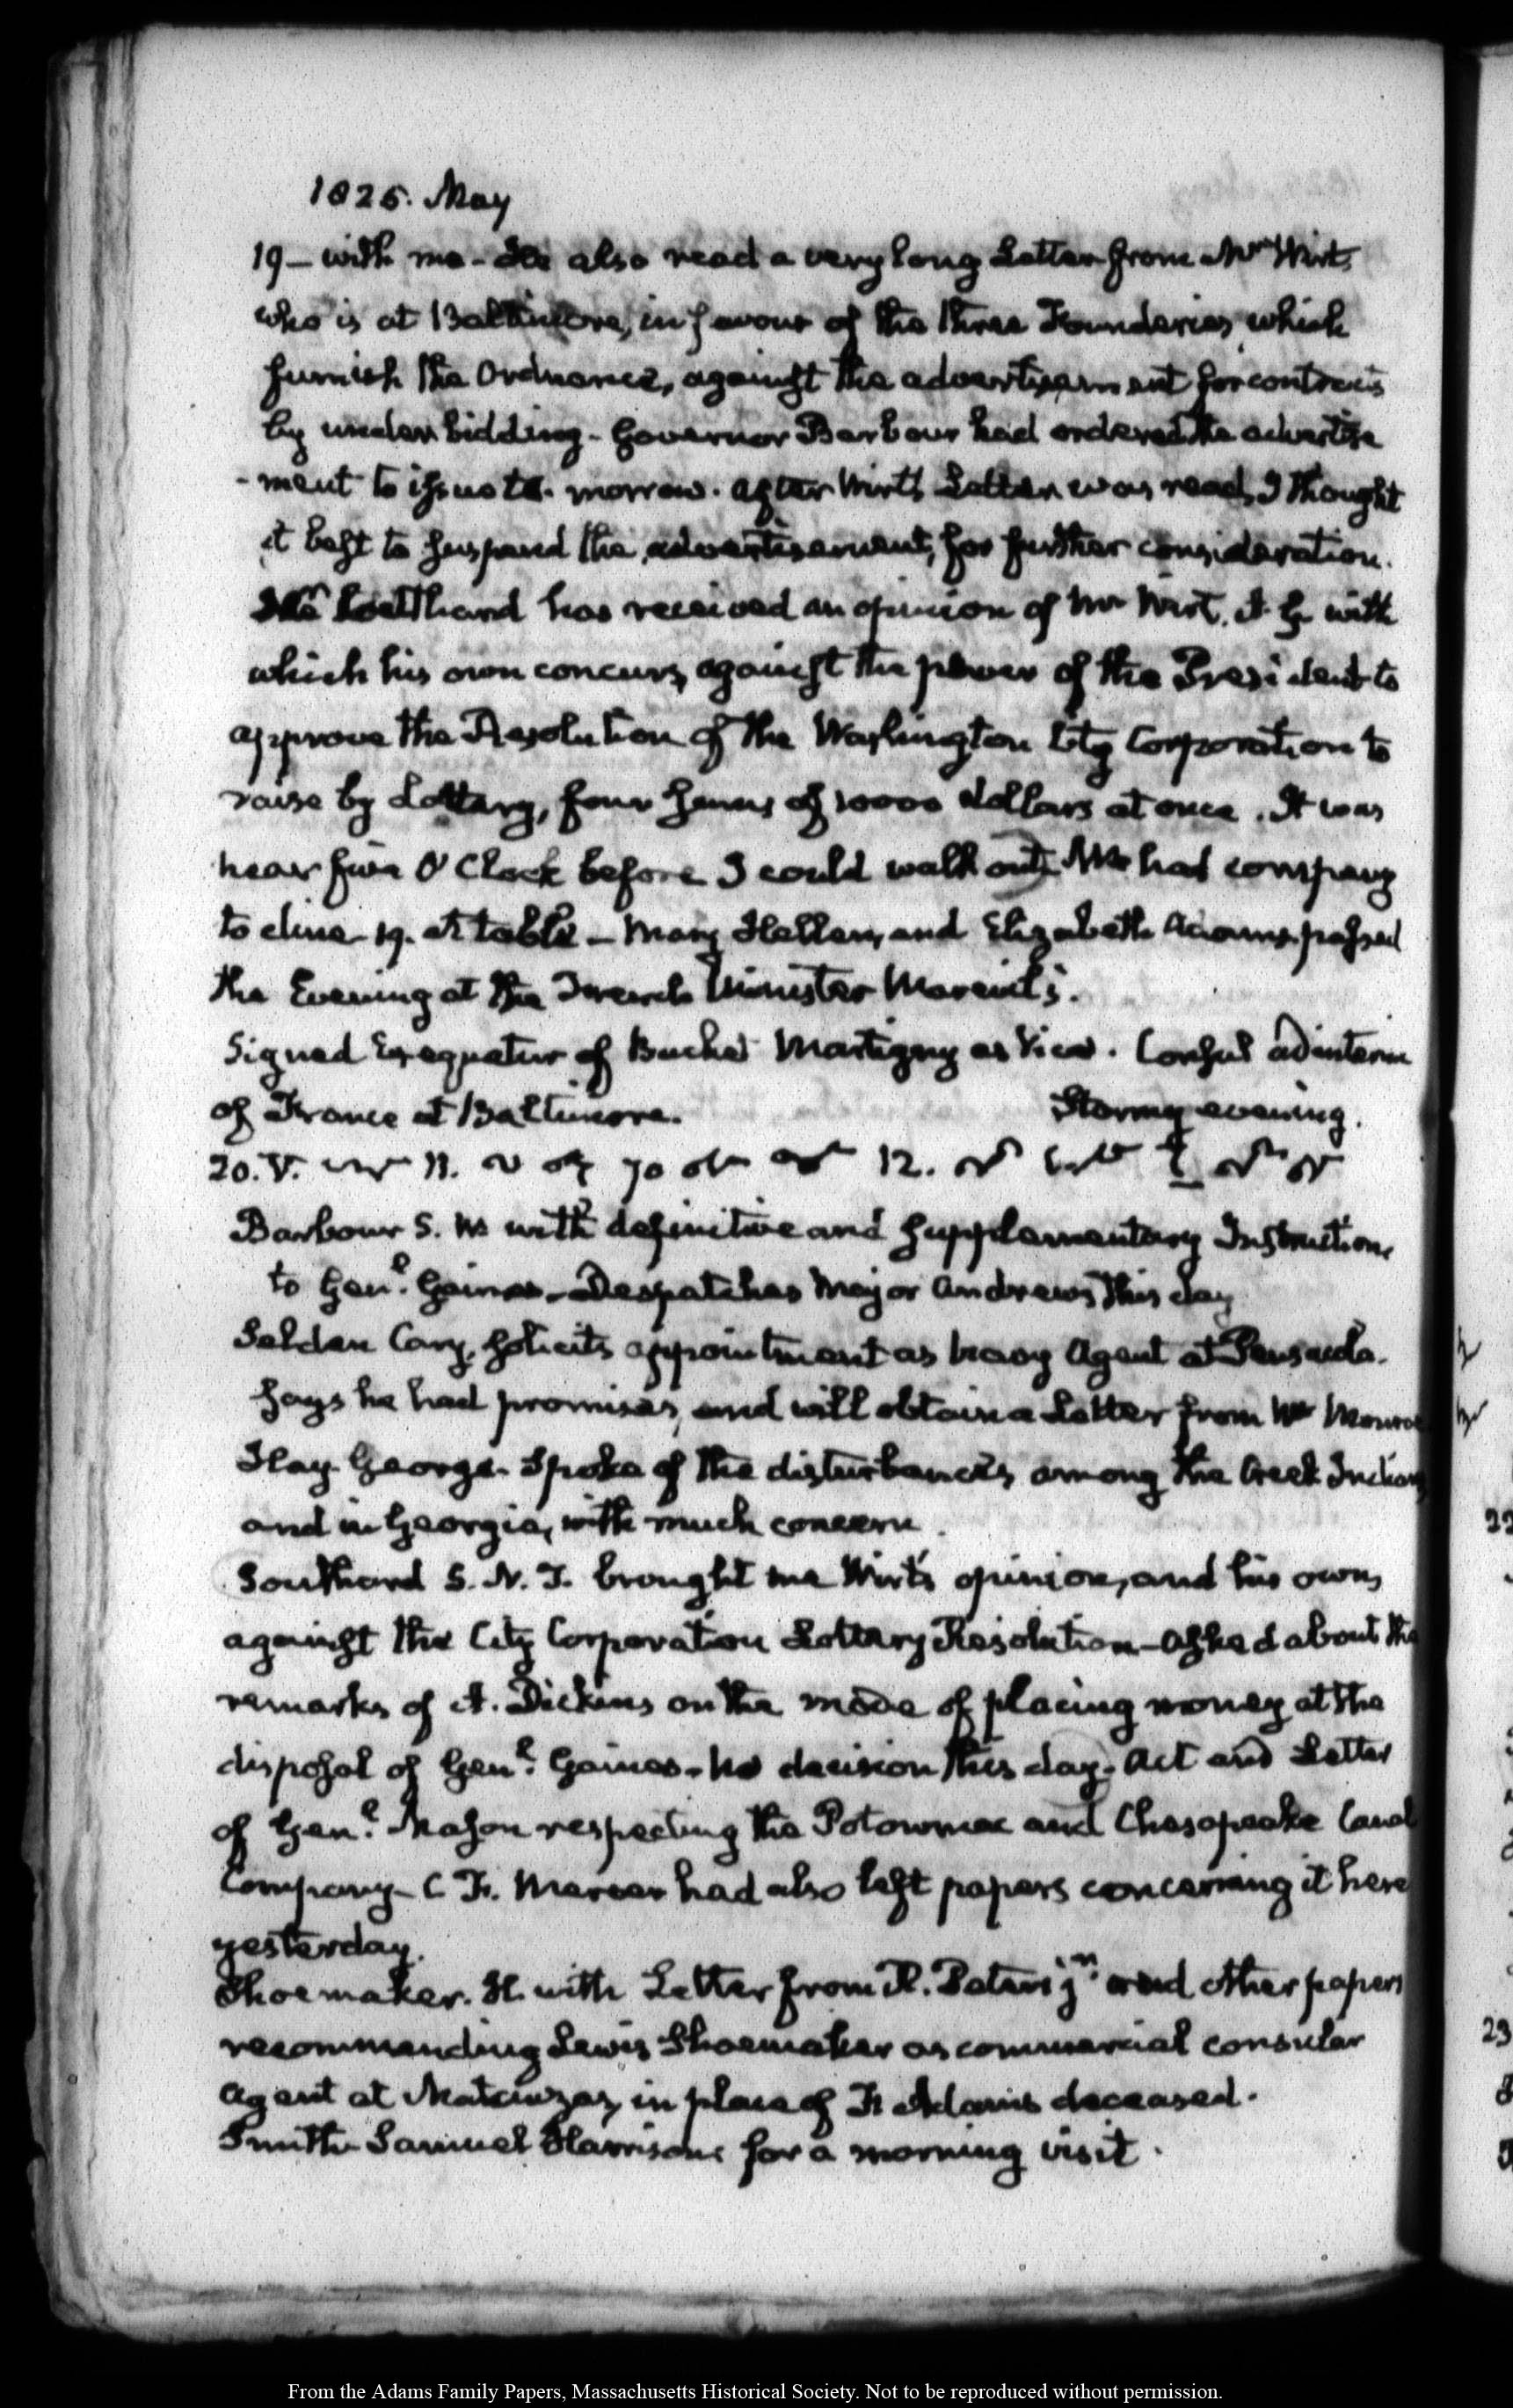 1825. May
19 — with me - He also read a very long Letter from Mr. Wirt,
who is at Baltimore, in favour of the three Founderies, which
furnish the Ordnance, against the advertisement for contracts
by underbidding - Governor Barbour had ordered the advertise
-ment to issue to-morrow. After Wirt's Letter was read, I thought
it best to suspend the advertisement, for further consideration.
Mr. Southard has received an opinion of Mr Wirt, A. G. with
which his own concurs, against the power of the President to
approve the Resolution of the Washington City Corporation to
raise by Lottery, four sums of 10000 dollars at once. It was
near five O'Clock before I could walk out. We had company
to dine - 19. at table — Mary Hellen, and Elizabeth Adams passed
the Evening at the French Minister Mareuil's.
Signed Exequatur of Buchet Martigny as Vice-Consul ad interim
of France at Baltimore. Stormy evening.
20. V.
Barbour S. W. with definitive and supplementary Instructions
to Genl. Gaines - Despatches Major Andrews this day
Selden Cary, solicits appointment as Navy Agent at Pensacola.
Says he had promises, and will obtain a Letter from Mr Monroe
Hay George. Spoke of the disturbances among the Creek Indians
and in Georgia, with much concern.
Southard S. N. T. brought me Wirt's opinion, and his own,
against the City Corporation Lottery Resolution - Asked about the
remarks of A. Dickins on the mode of placing money at the
disposal of Genl. Gaines - No decision this day. Act and Letter
of Genl. Mason respecting the Potowmac and Chesapeake Canal
Company - C. F. Mercer had also left papers concerning it here
yesterday.
Shoemaker. H. with Letter from R. Peters jr. and other papers
recommending Lewis Shoemaker as commercial consular
Agent at Matanzas, in place of F. Adams deceased.
Smith Samuel Harrison for a morning visit.
22
23
From the Adams Family Papers, Massachusetts Historical Society. Not to be reproduced without permission.